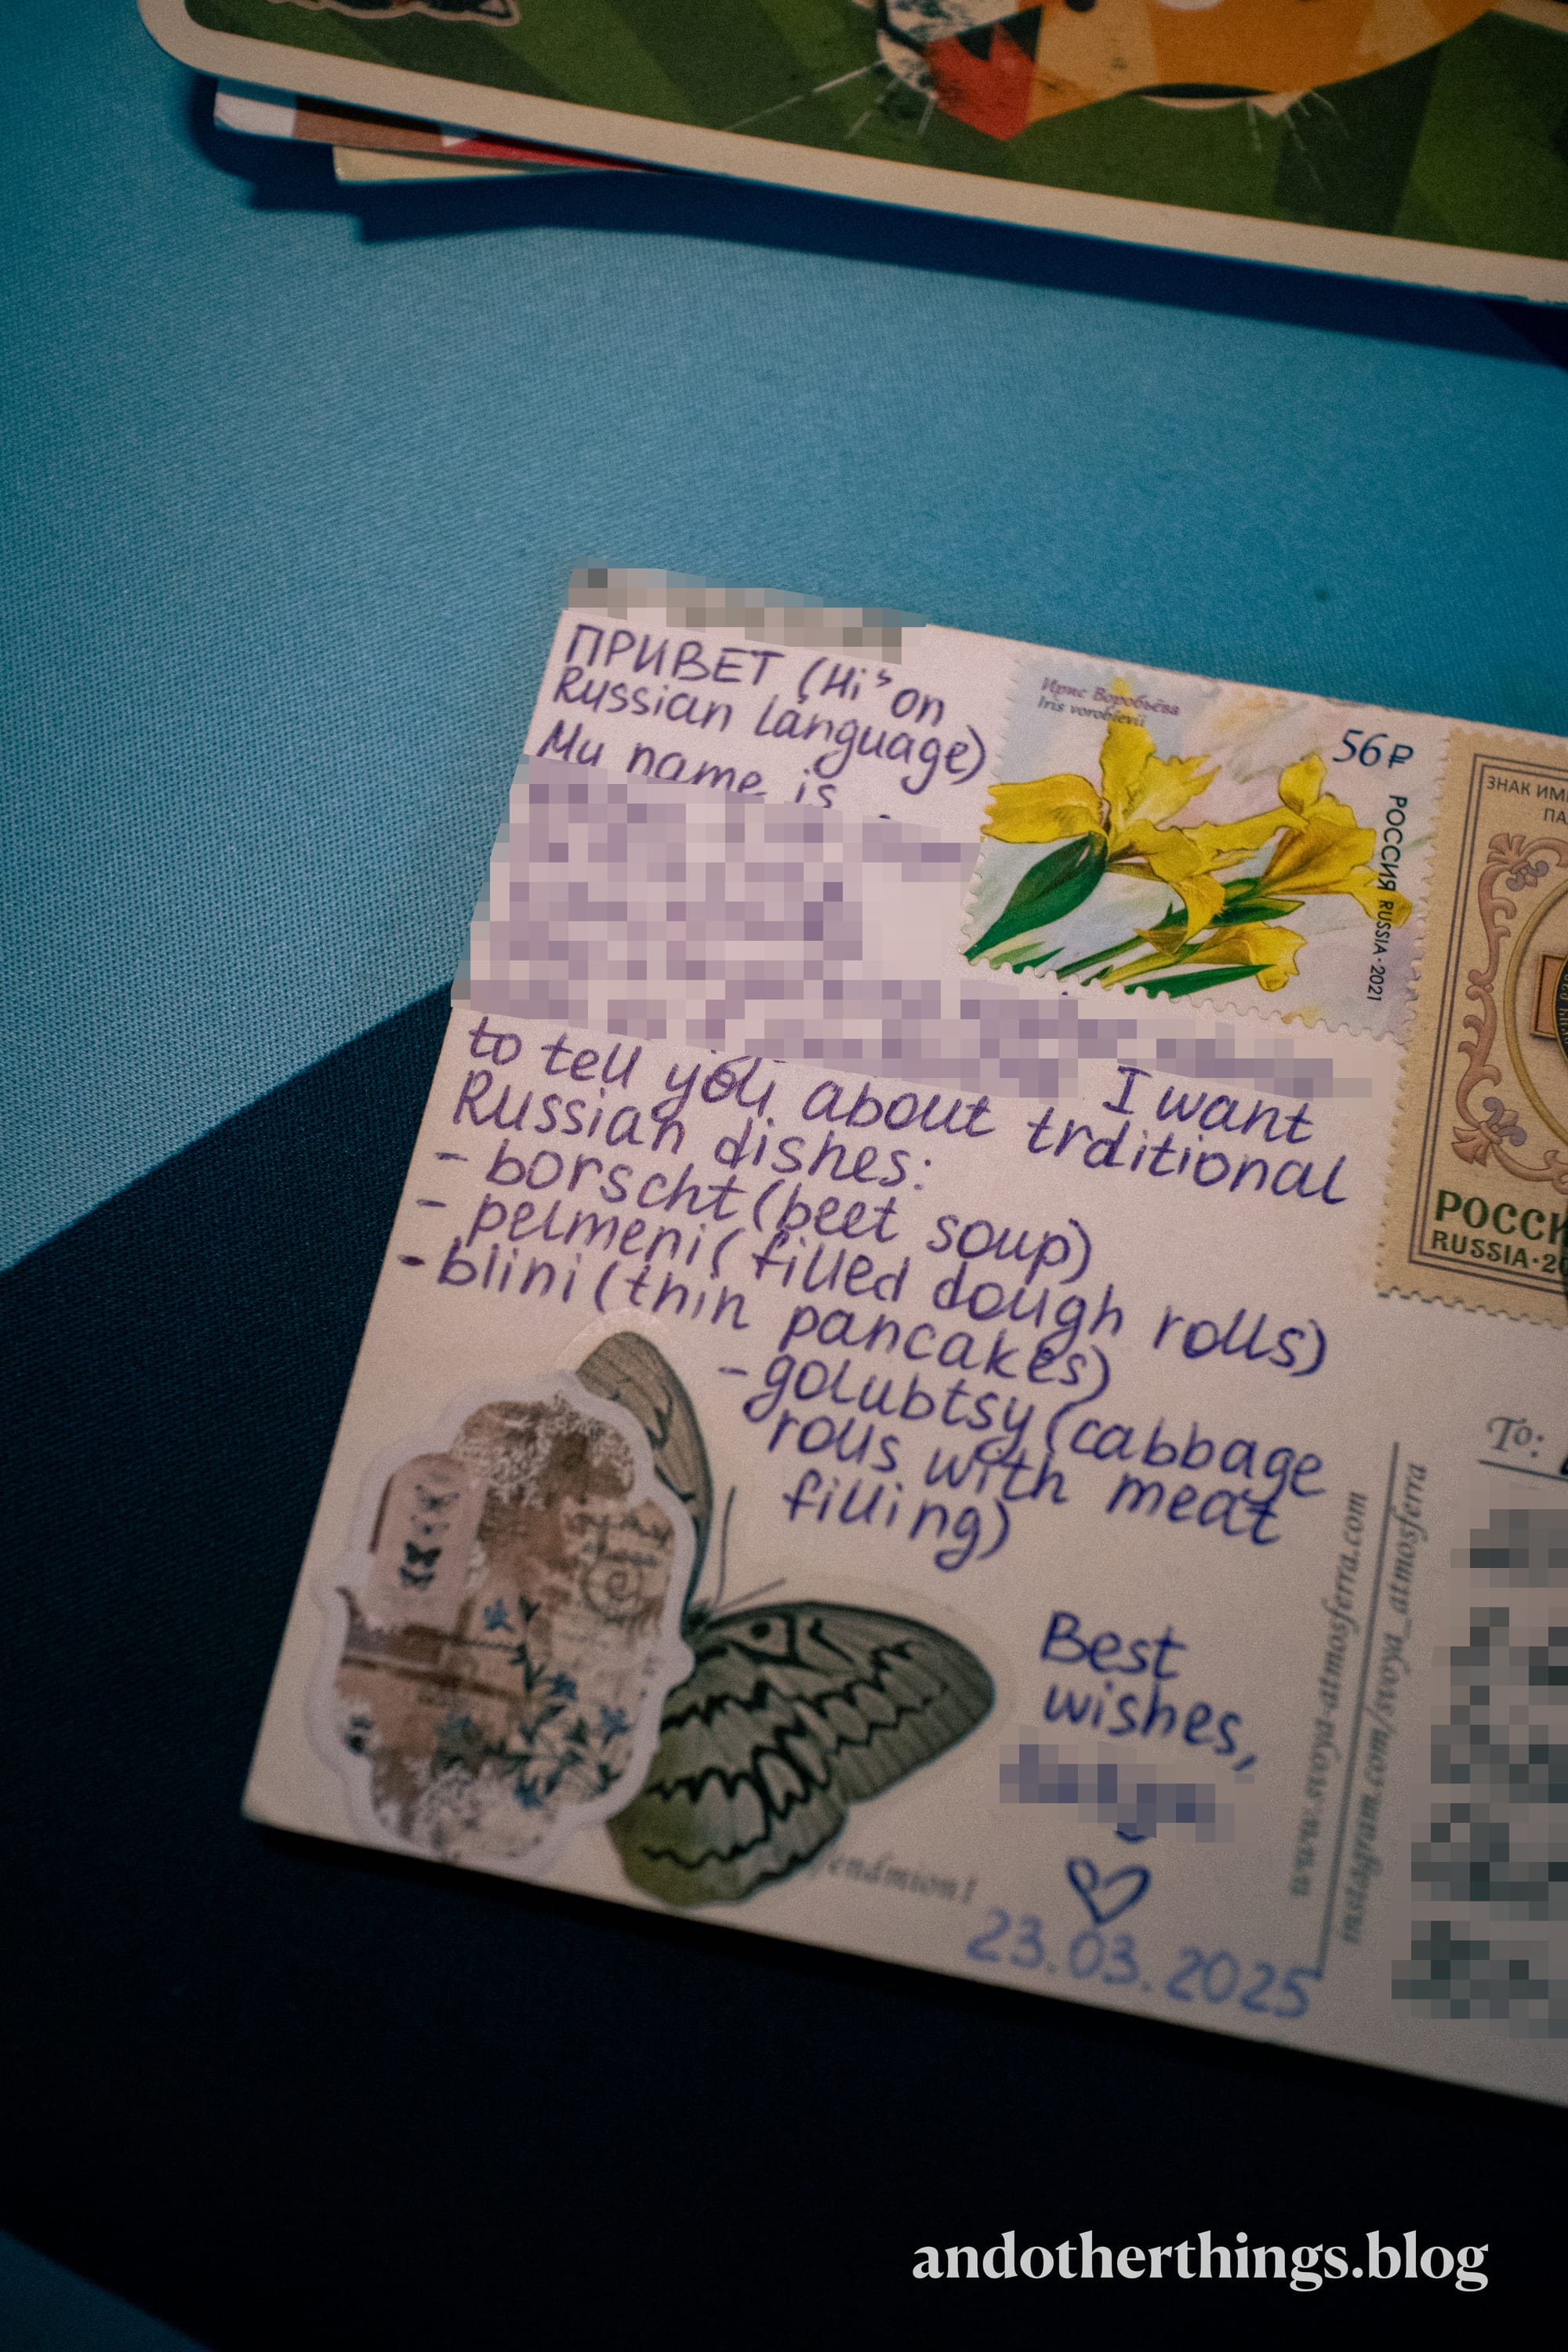 ПРИВЕТ (Hi on
Russian language)
My name is
I want
to tell you about trditional
Russian dishes:
- borscht (beet soup)
- pelmeni (filled dough rolls)
- blini (thin pancakes)
- golubtsy (cabbage
rolls with meat
filling)
Best
wishes,
23.03.2025
Ирис Воробьёва
Iris vorobievii
56₽
РОССИЯ RUSSIA · 2021
ЗНАК
RUSSIA · 20
To:
www.svoya-atmosferra.com
instagram.com/svoya_atmosferra
andotherthings.blog